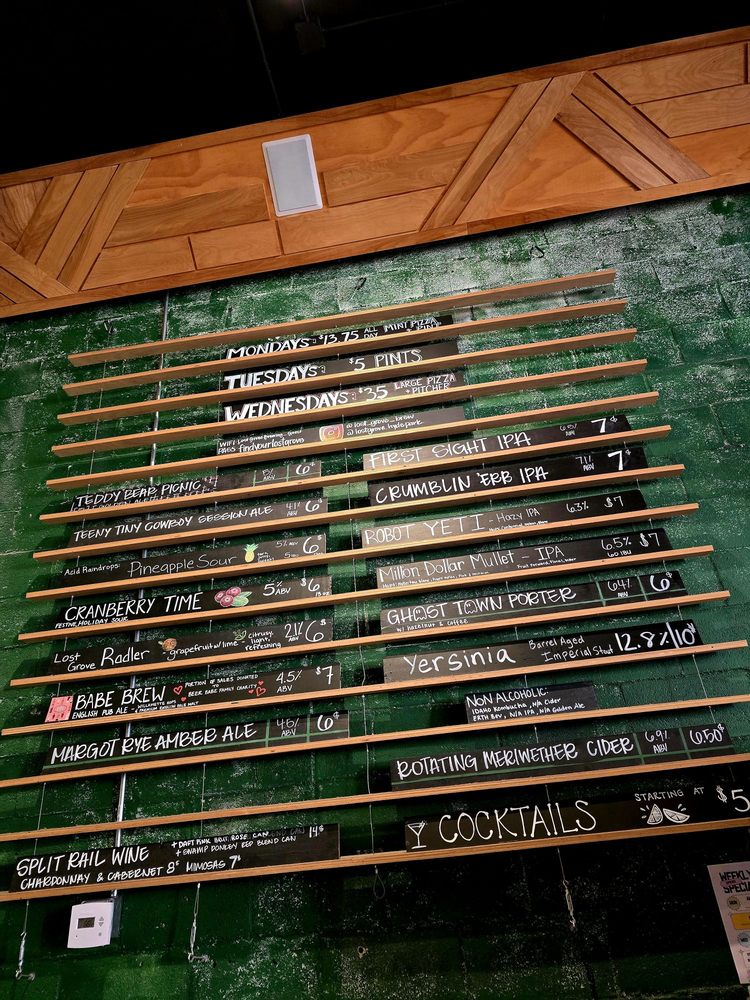 MONDAYS: $13.75 ALL DAY MINI PIZZA
TUESDAYS: $5 PINTS
WEDNESDAYS: $35 LARGE PIZZA + PITCHER
WIFI
PASS: findyourlostgrove
@lost_grove_brew
@lostgrove.hydepark
TEDDY BEAR PICNIC 5% ABV 6$
TEENY TINY COWBOY SESSION ALE 4.1% ABV 6$
Acid Raindrops: Pineapple Sour 5% ABV 6$
CRANBERRY TIME 5% ABV $6
FESTIVE HOLIDAY SOUR
Lost Grove Radler grapefruit w/ lime citrusy, light, refreshing 2.1% 6$
BABE BREW PORTION OF SALES DONATED TO BEER BABE FAMILY CHARITY 4.5% ABV $7
ENGLISH PUB ALE
MARGOT RYE AMBER ALE 4.6% ABV 6$
SPLIT RAIL WINE + DAFT PINK BOIT ROSE CAN 14$
+ SWAMP DONKEY RED BLEND CAN
CHARDONNAY & CABERNET 8$ MIMOSAS 7$
FIRST SIGHT IPA 6.5% ABV 7$
CRUMBLIN' ERB IPA 7.1% ABV 7$
ROBOT YETI - HAZY IPA 6.3% $7
Million Dollar Mullet - IPA 6.5% 60 IBU $7
GHOST TOWN PORTER 6.4% ABV 6$
w/ HAZELNUT & COFFEE
Yersinia Barrel Aged Imperial Stout 12.8%/10$
NON ALCOHOLIC:
IDAHO Kombucha, N/A Cider
ERTH BEV, N/A IPA, N/A Golden Ale
ROTATING MERIWETHER CIDER 6.9% ABV 6.50$
COCKTAILS STARTING AT $5
WEEKLY SPECIALS